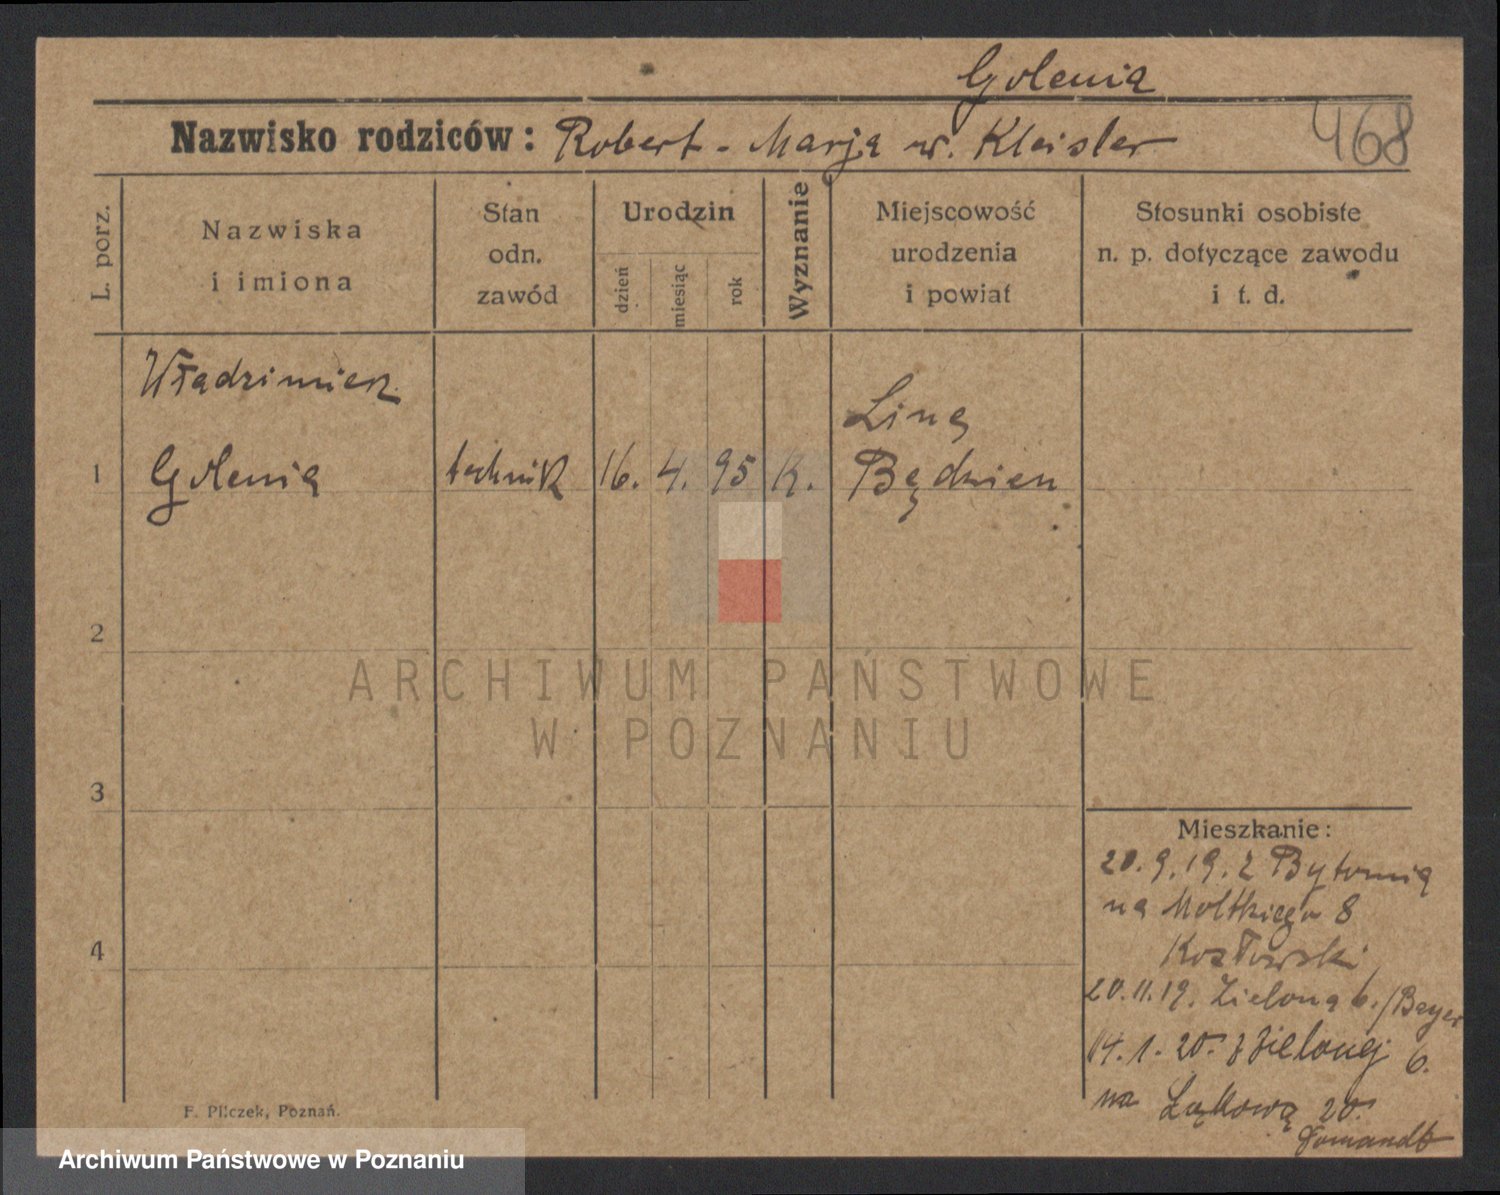 Golenia
Nazwisko rodziców: Robert - Marja w. Kleisler
468
L. porz.
Nazwiska
i imiona
Stan
odn.
zawód
Urodzin
dzień
miesiąc
rok
Wyznanie
Miejscowość
urodzenia
i powiat
Stosunki osobiste
n. p. dotyczące zawodu
i t. d.
Władzimierz
Golenia
1
technik
16. 4. 95
K.
Lina
Będzien
2
3
4
ARCHIWUM PAŃSTWOWE
W POZNANIU
Mieszkanie:
20.9.19. z Bytomia
na Moltkiego 8
Kozłowski
20.11.19. Zielona 6./Bayer
14.1.20. z Zielonej 6.
na Łąkową 20.
F. Pilczek, Poznań.
Archiwum Państwowe w Poznaniu